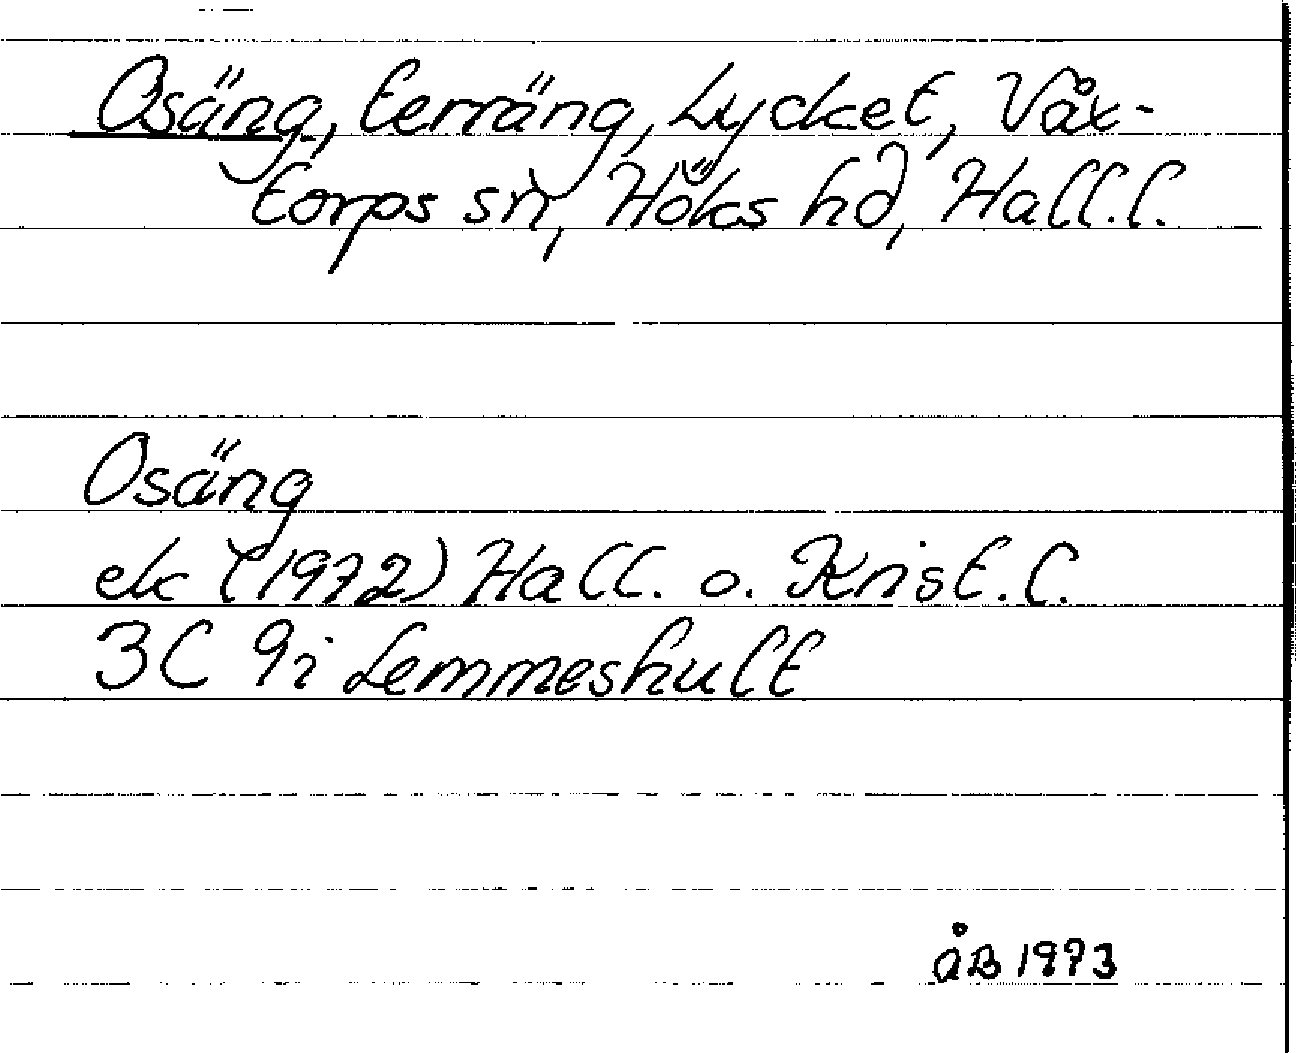 Osäng, terräng, Lycket, Våx-
torps sn, Höks hd, Hall.l.
Osäng
ek (1972) Hall. o. Krist.l.
3C 9i Lemmeshult
ÅB 1973